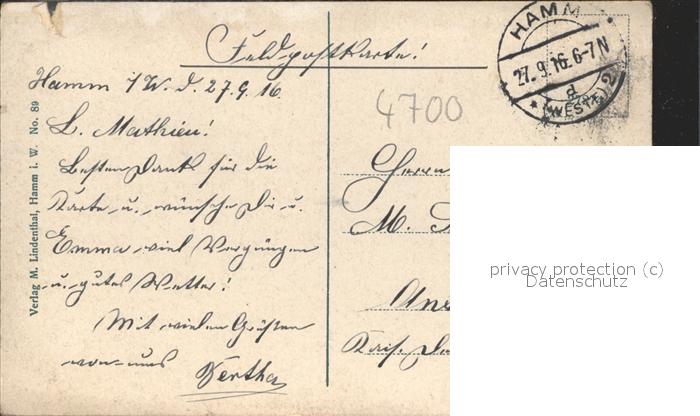 Feldpostkarte!
HAMM
27.9.16.6-7N
d
* (WESTF.) 2
Hamm i/W. d. 27.9.16
4700
L. Mathieu!
Besten Dank für die
Karte u. wünsche Dir u.
Emma viel Vergnügen
u. gutes Wetter!
Mit vielen Grüßen
von uns
Bertha
Herrn
M.
Kais.
Verlag M. Lindenthal, Hamm i. W. No. 89
privacy protection (c)
Datenschutz